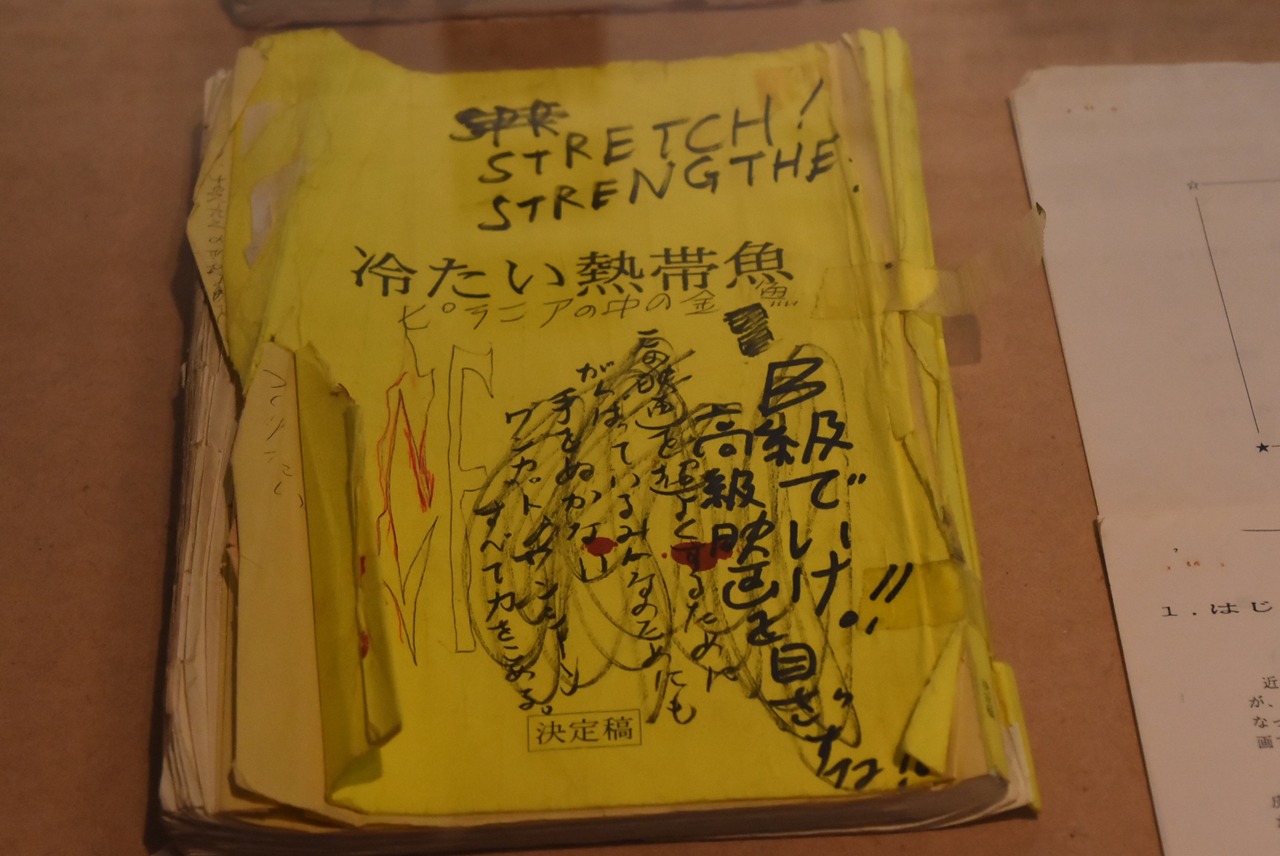 STRETCH!
STRENGTHE.
冷たい熱帯魚
ピラニアの中の金魚
B級でいけ。!!
高級映画を目ざすな!!
この映画を超よくするために
がんばっているみんなのためにも
手をぬかない
ワンカットワンシーン
すべて力をこめる。
決定稿
1.はじ
近
が、
なっ
画で